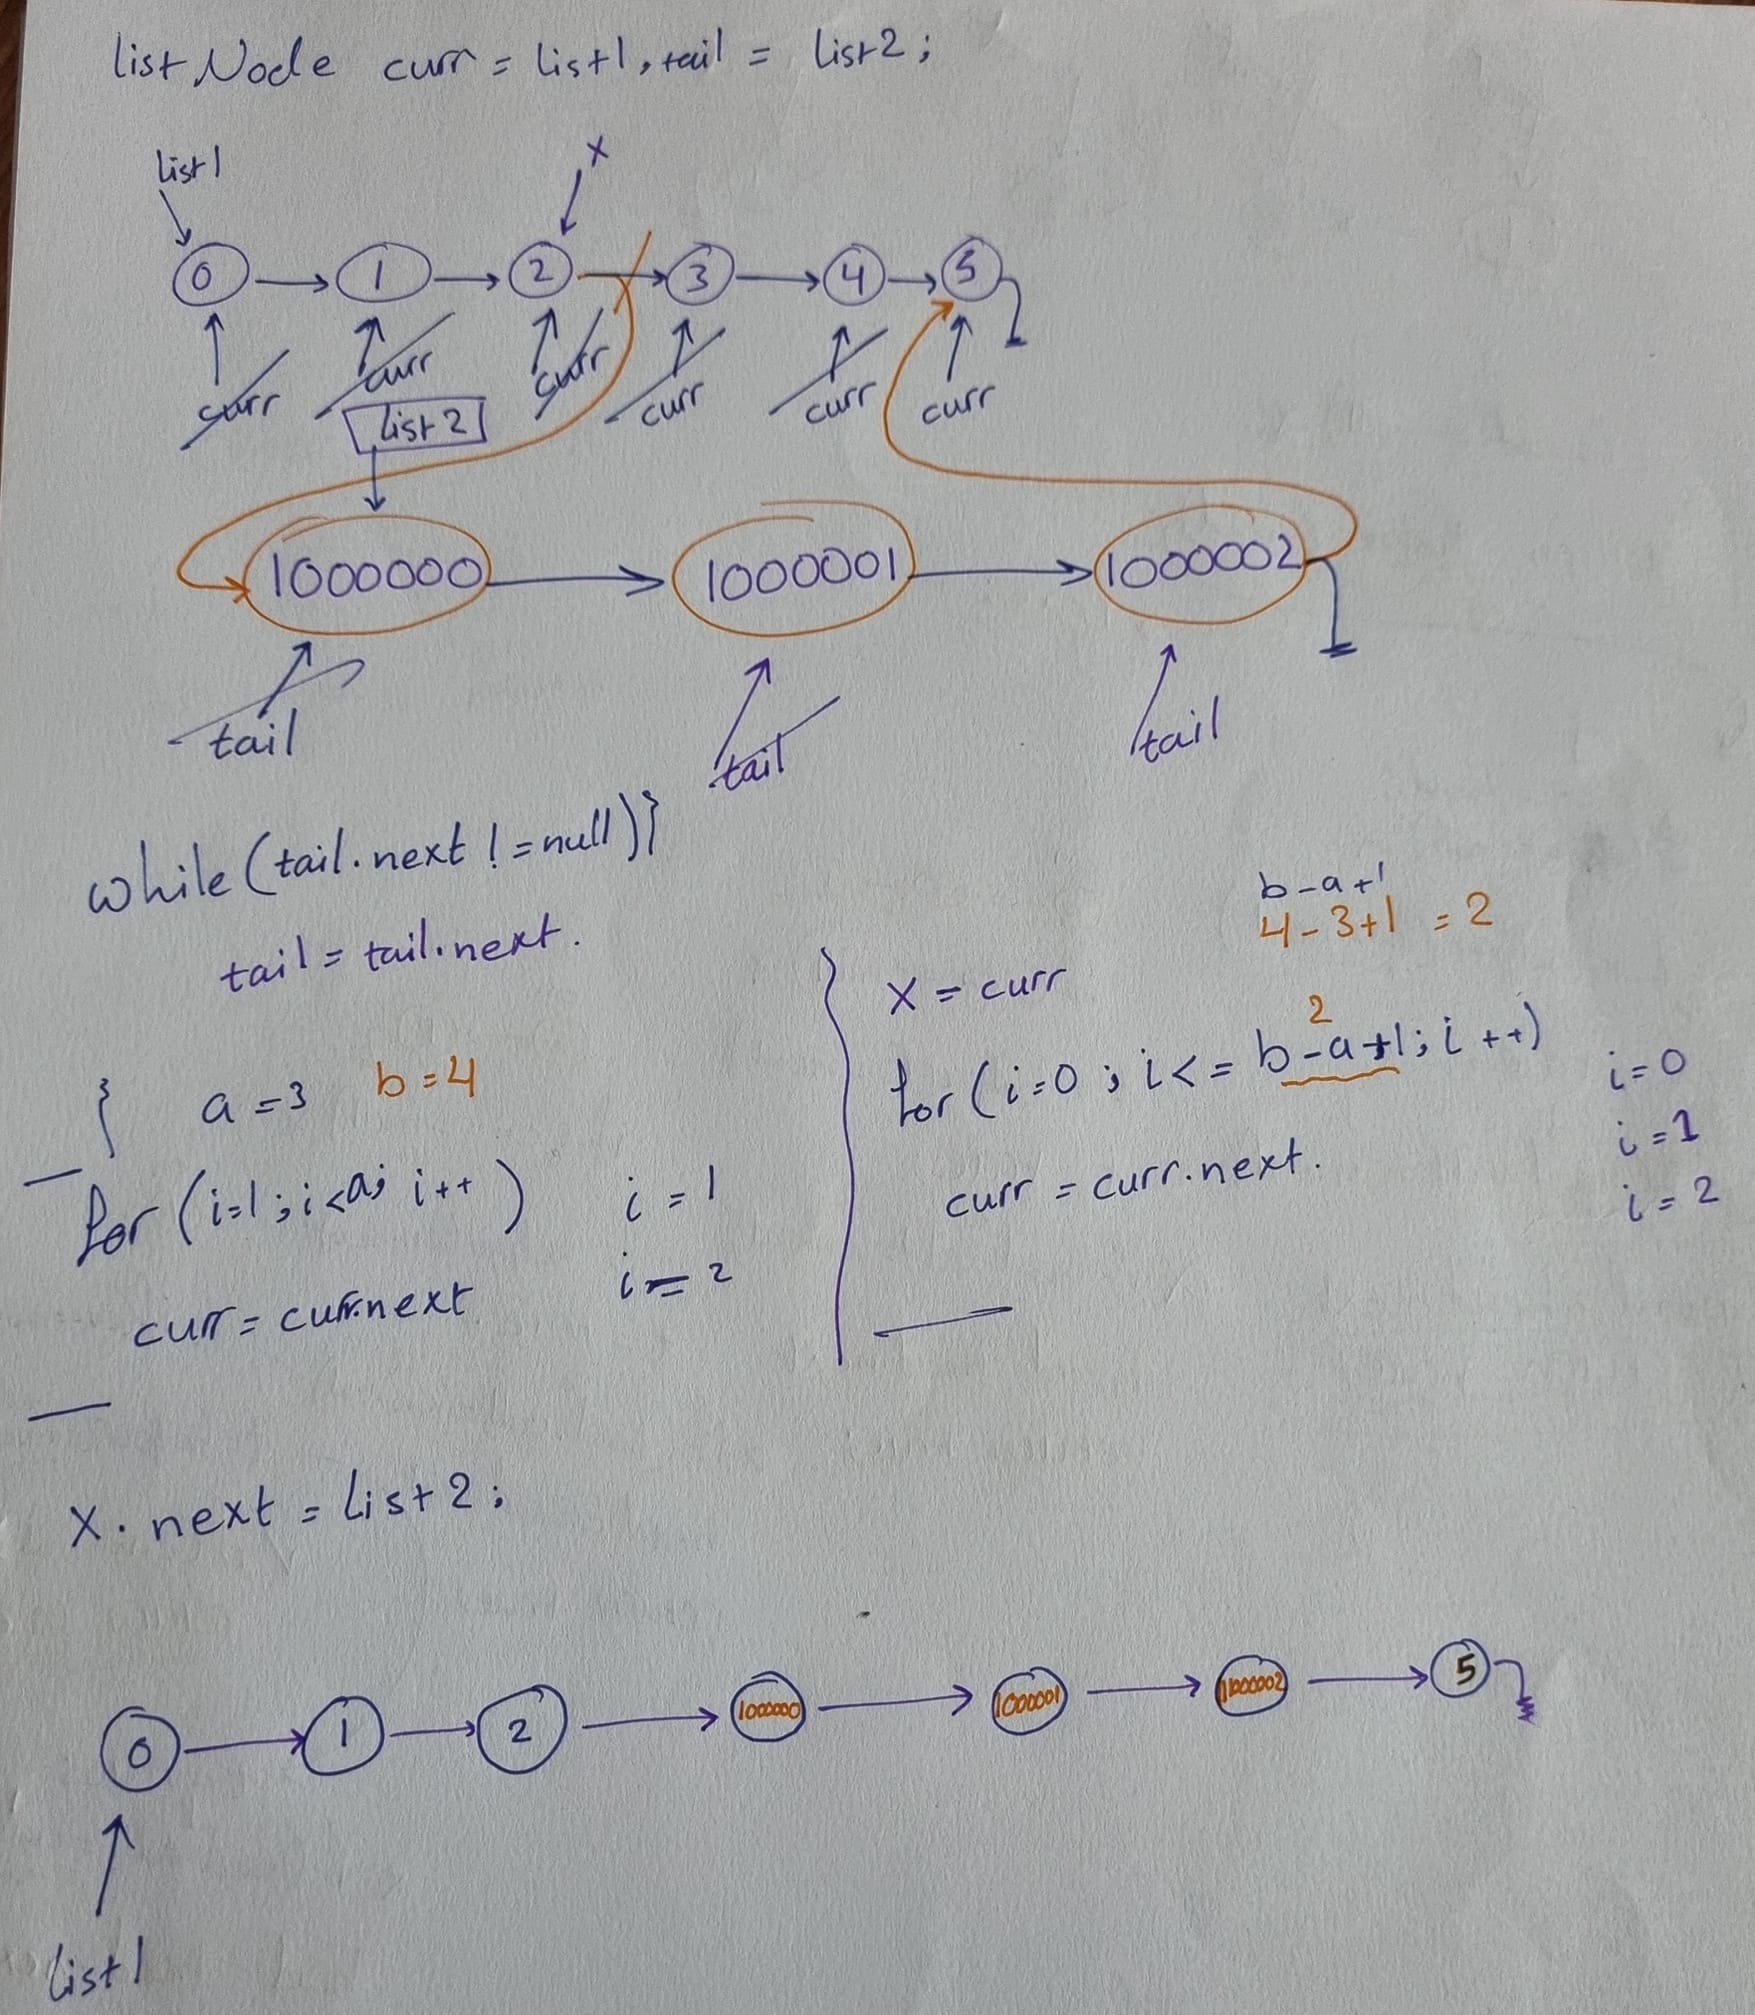 list Node curr = list1, tail = list2;
list1
x
0 1 2 3 4 5
curr curr curr curr curr curr
list2
1000000 1000001 1000002
tail tail tail
while (tail.next != null)}
tail = tail.next.
b-a+1
4-3+1 = 2
{ a=3 b=4
for (i=1; i<a; i++) i=1
i=2
curr = curr.next
X = curr
2
for (i=0; i<= b-a+1; i++) i=0
i=1
curr = curr.next. i=2
X.next = list2;
0 1 2 1000000 1000001 1000002 5
list1